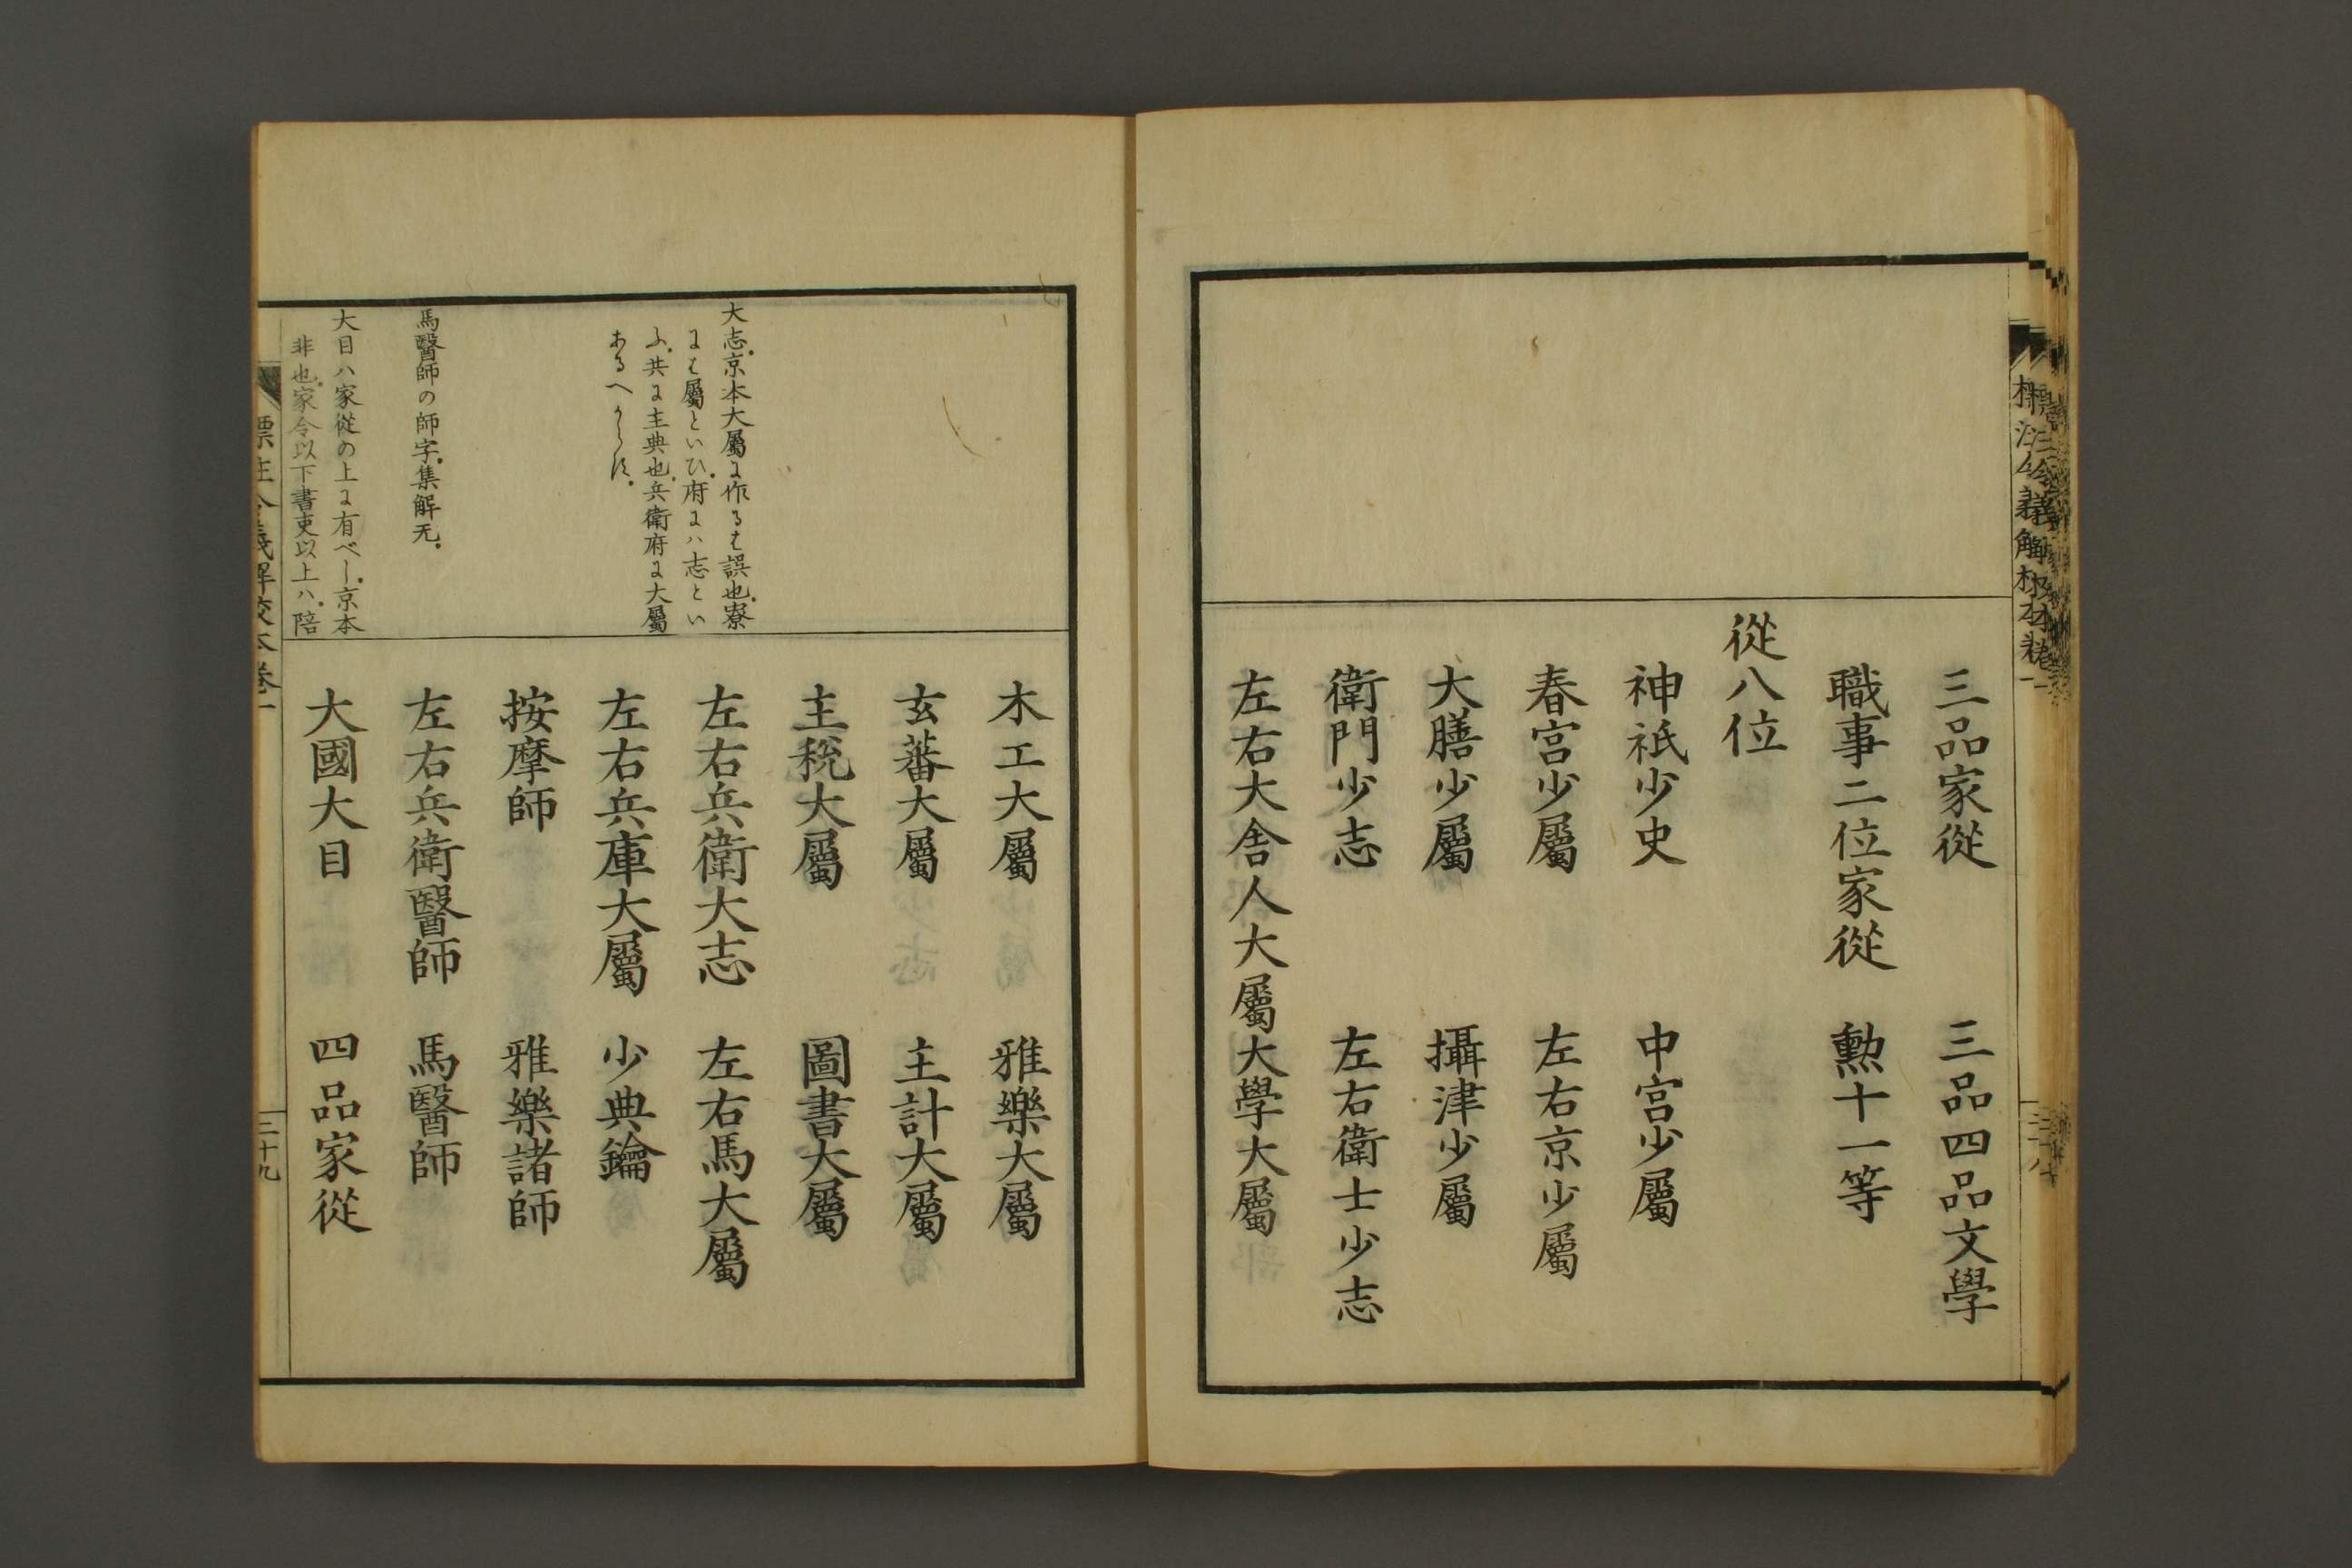 標注令義解校本卷一
三品家從　三品四品文學
職事二位家從　勲十一等
從八位
神祇少史　中宮少屬
春宮少屬　左右京少屬
大膳少屬　攝津少屬
衛門少志　左右衛士少志
左右大舍人大屬大學大屬
大志。京本大屬に作るは誤也。寮
には屬といひ。府にハ志とい
ふ。共に主典也。兵衛府に大屬
あるへからす。
馬醫師の師字。集解无。
大目ハ家從の上に有べし。京本
非也。家令以下書吏以上ハ。陪
木工大屬　雅樂大屬
玄蕃大屬　主計大屬
主税大屬　圖書大屬
左右兵衛大志　左右馬大屬
左右兵庫大屬　少典鑰
按摩師　雅樂諸師
左右兵衛醫師　馬醫師
大國大目　四品家從
標注令義解校本卷一
三十九